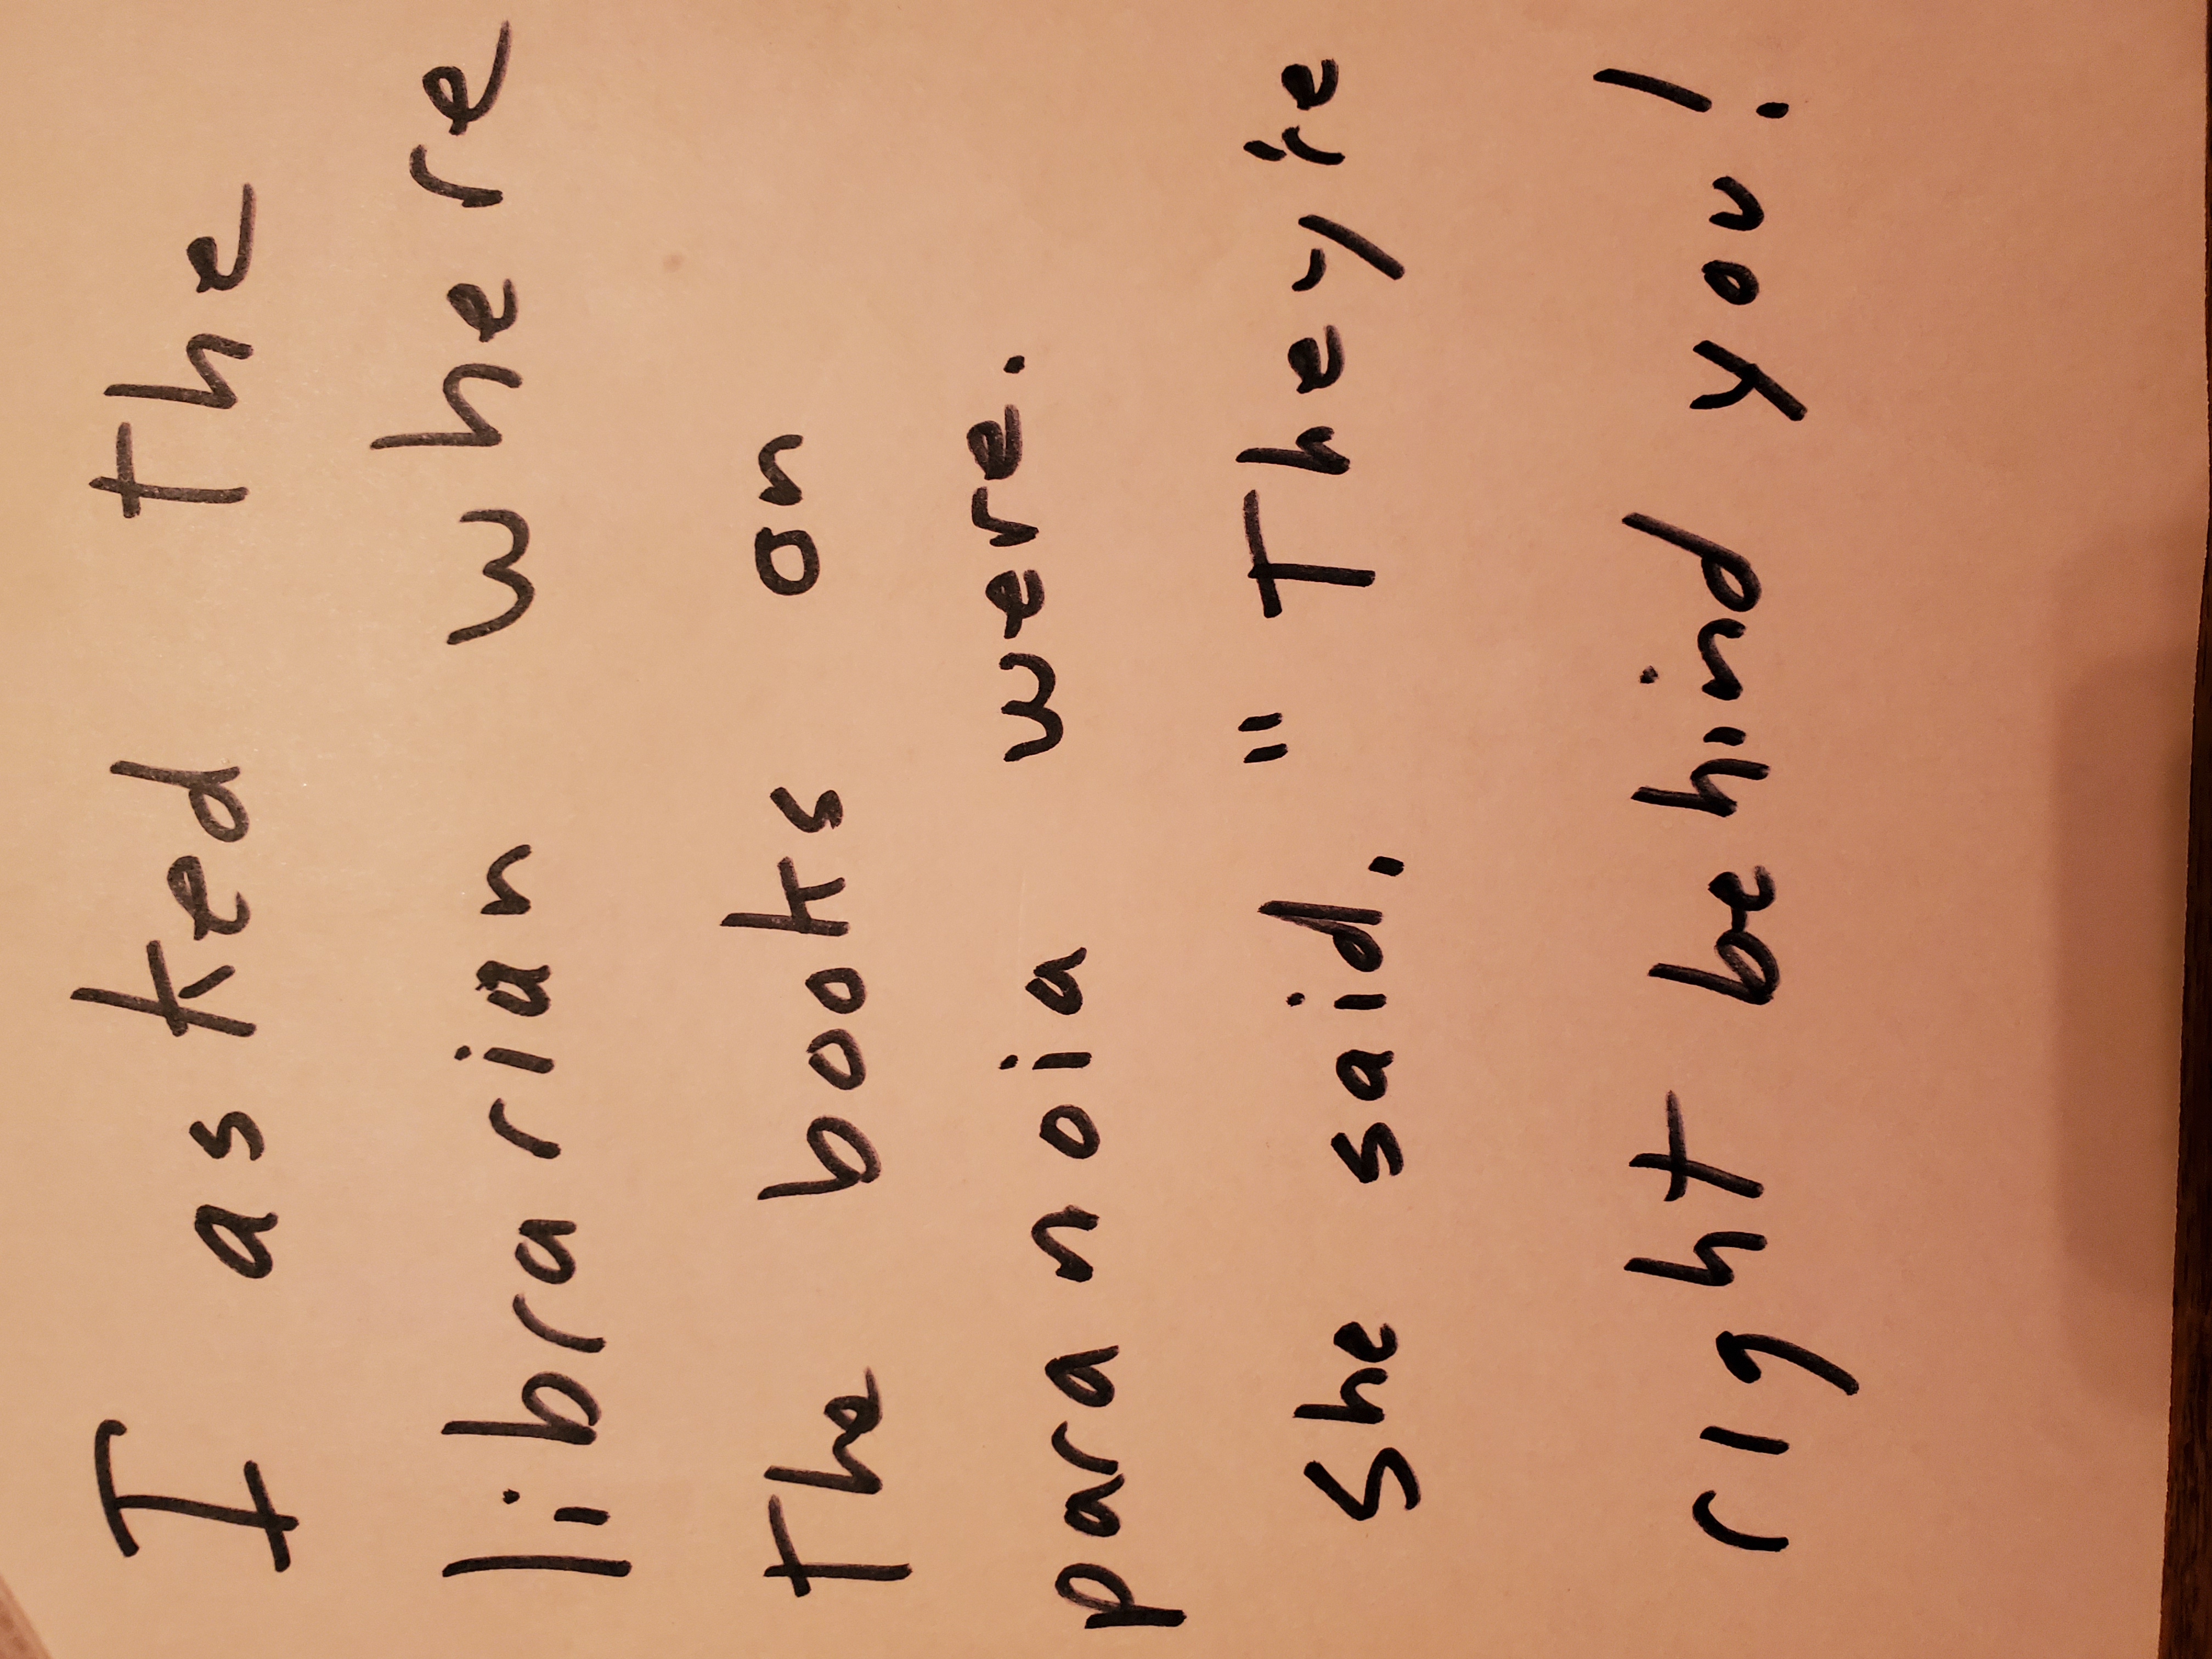 I asked the
librarian where
the books on
paranoia were.
She said, "They're
right behind you!